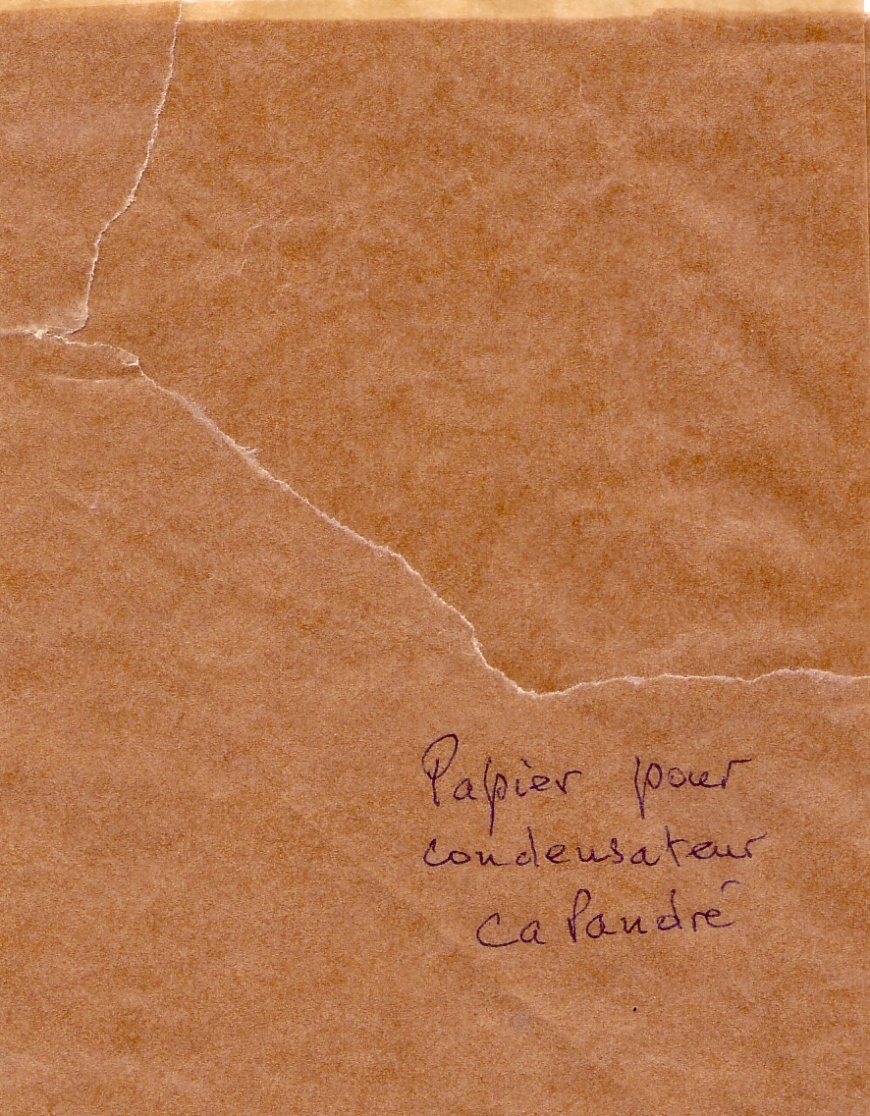 Papier pour
condensateur
calandré